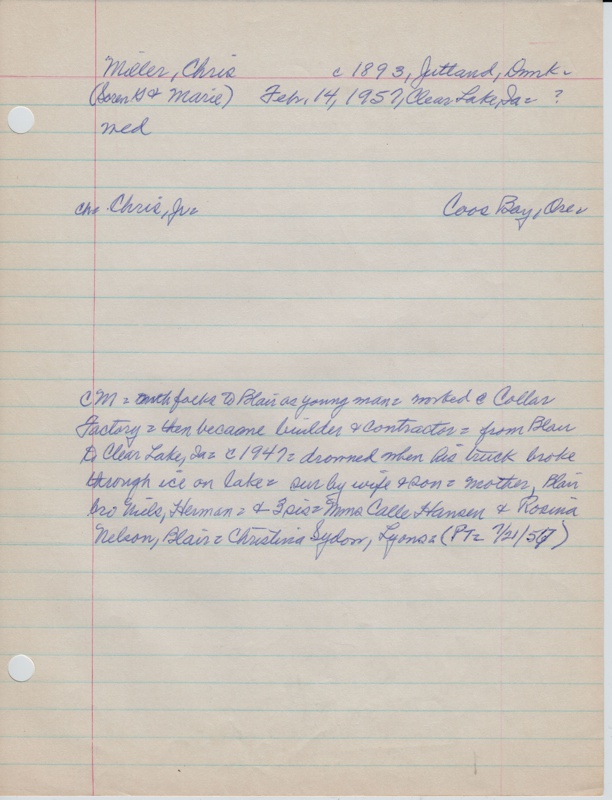 Miller, Chris c 1893, Jutland, Dmrk-
(Soren G & Marie) Feb. 14, 1957, Clear Lake, Ia= ?
med
ch= Chris, Jr= Coos Bay, Ore=
CM = with folks to Blair as young man= worked @ Collar
Factory = then became builder & contractor = from Blair
to Clear Lake, Ia= c 1947= drowned when his truck broke
through ice on lake= sur by wife & son= mother, Blair
bro Niels, Herman= & 3 sis= Mms Calle Hansen & Rosina
Nelson, Blair= Christina Sydow, Lyons= (PT= 2/21/57)